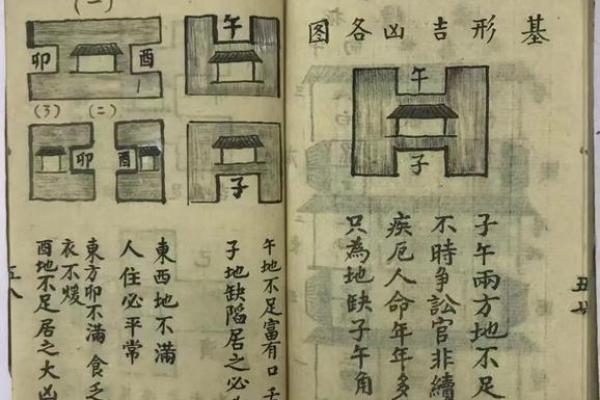 基形吉凶各图
午
子
子午兩方地不足
不時爭訟官非續
疾厄人命年年多
只為地缺子午角
五七
午
子
(一)
卯 酉
1
(3) (二)
卯 酉
午地不足富有口舌
子地缺陷居之必
東西地不滿
人住必平常
東方卯不滿 食乏
衣不煖
酉地不足居之大凶
五八